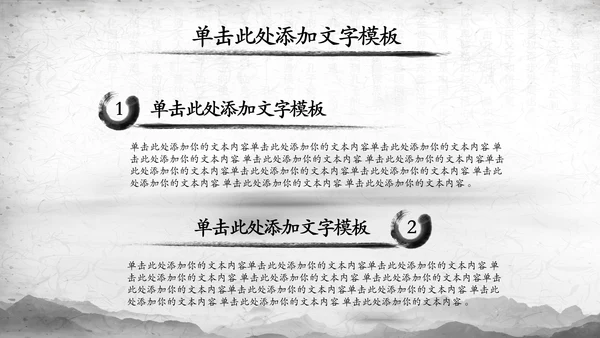 单击此处添加文字模板
1 单击此处添加文字模板
单击此处添加你的文本内容单击此处添加你的文本内容单击此处添加你的文本内容 单
击此处添加你的文本内容 单击此处添加你的文本内容 单击此处添加你的文本内容单击
此处添加你的文本内容单击此处添加你的文本内容单击此处添加你的文本内容 单击此
处添加你的文本内容 单击此处添加你的文本内容 单击此处添加你的文本内容 。
单击此处添加文字模板 2
单击此处添加你的文本内容单击此处添加你的文本内容单击此处添加你的文本内容 单
击此处添加你的文本内容 单击此处添加你的文本内容 单击此处添加你的文本内容单击
此处添加你的文本内容单击此处添加你的文本内容单击此处添加你的文本内容 单击此
处添加你的文本内容 单击此处添加你的文本内容 单击此处添加你的文本内容 。